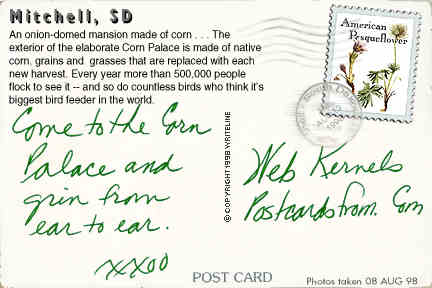 Mitchell, SD
An onion-domed mansion made of corn . . . The
exterior of the elaborate Corn Palace is made of native
corn, grains and grasses that are replaced with each
new harvest. Every year more than 500,000 people
flock to see it -- and so do countless birds who think it's
biggest bird feeder in the world.
Come to the Corn
Palace and
grin from
ear to ear.
xxoo
American
Pasqueflower
© COPYRIGHT 1998 WRITELINE
Web Kernels
Postcardsfrom. Com
POST CARD
Photos taken 08 AUG 98